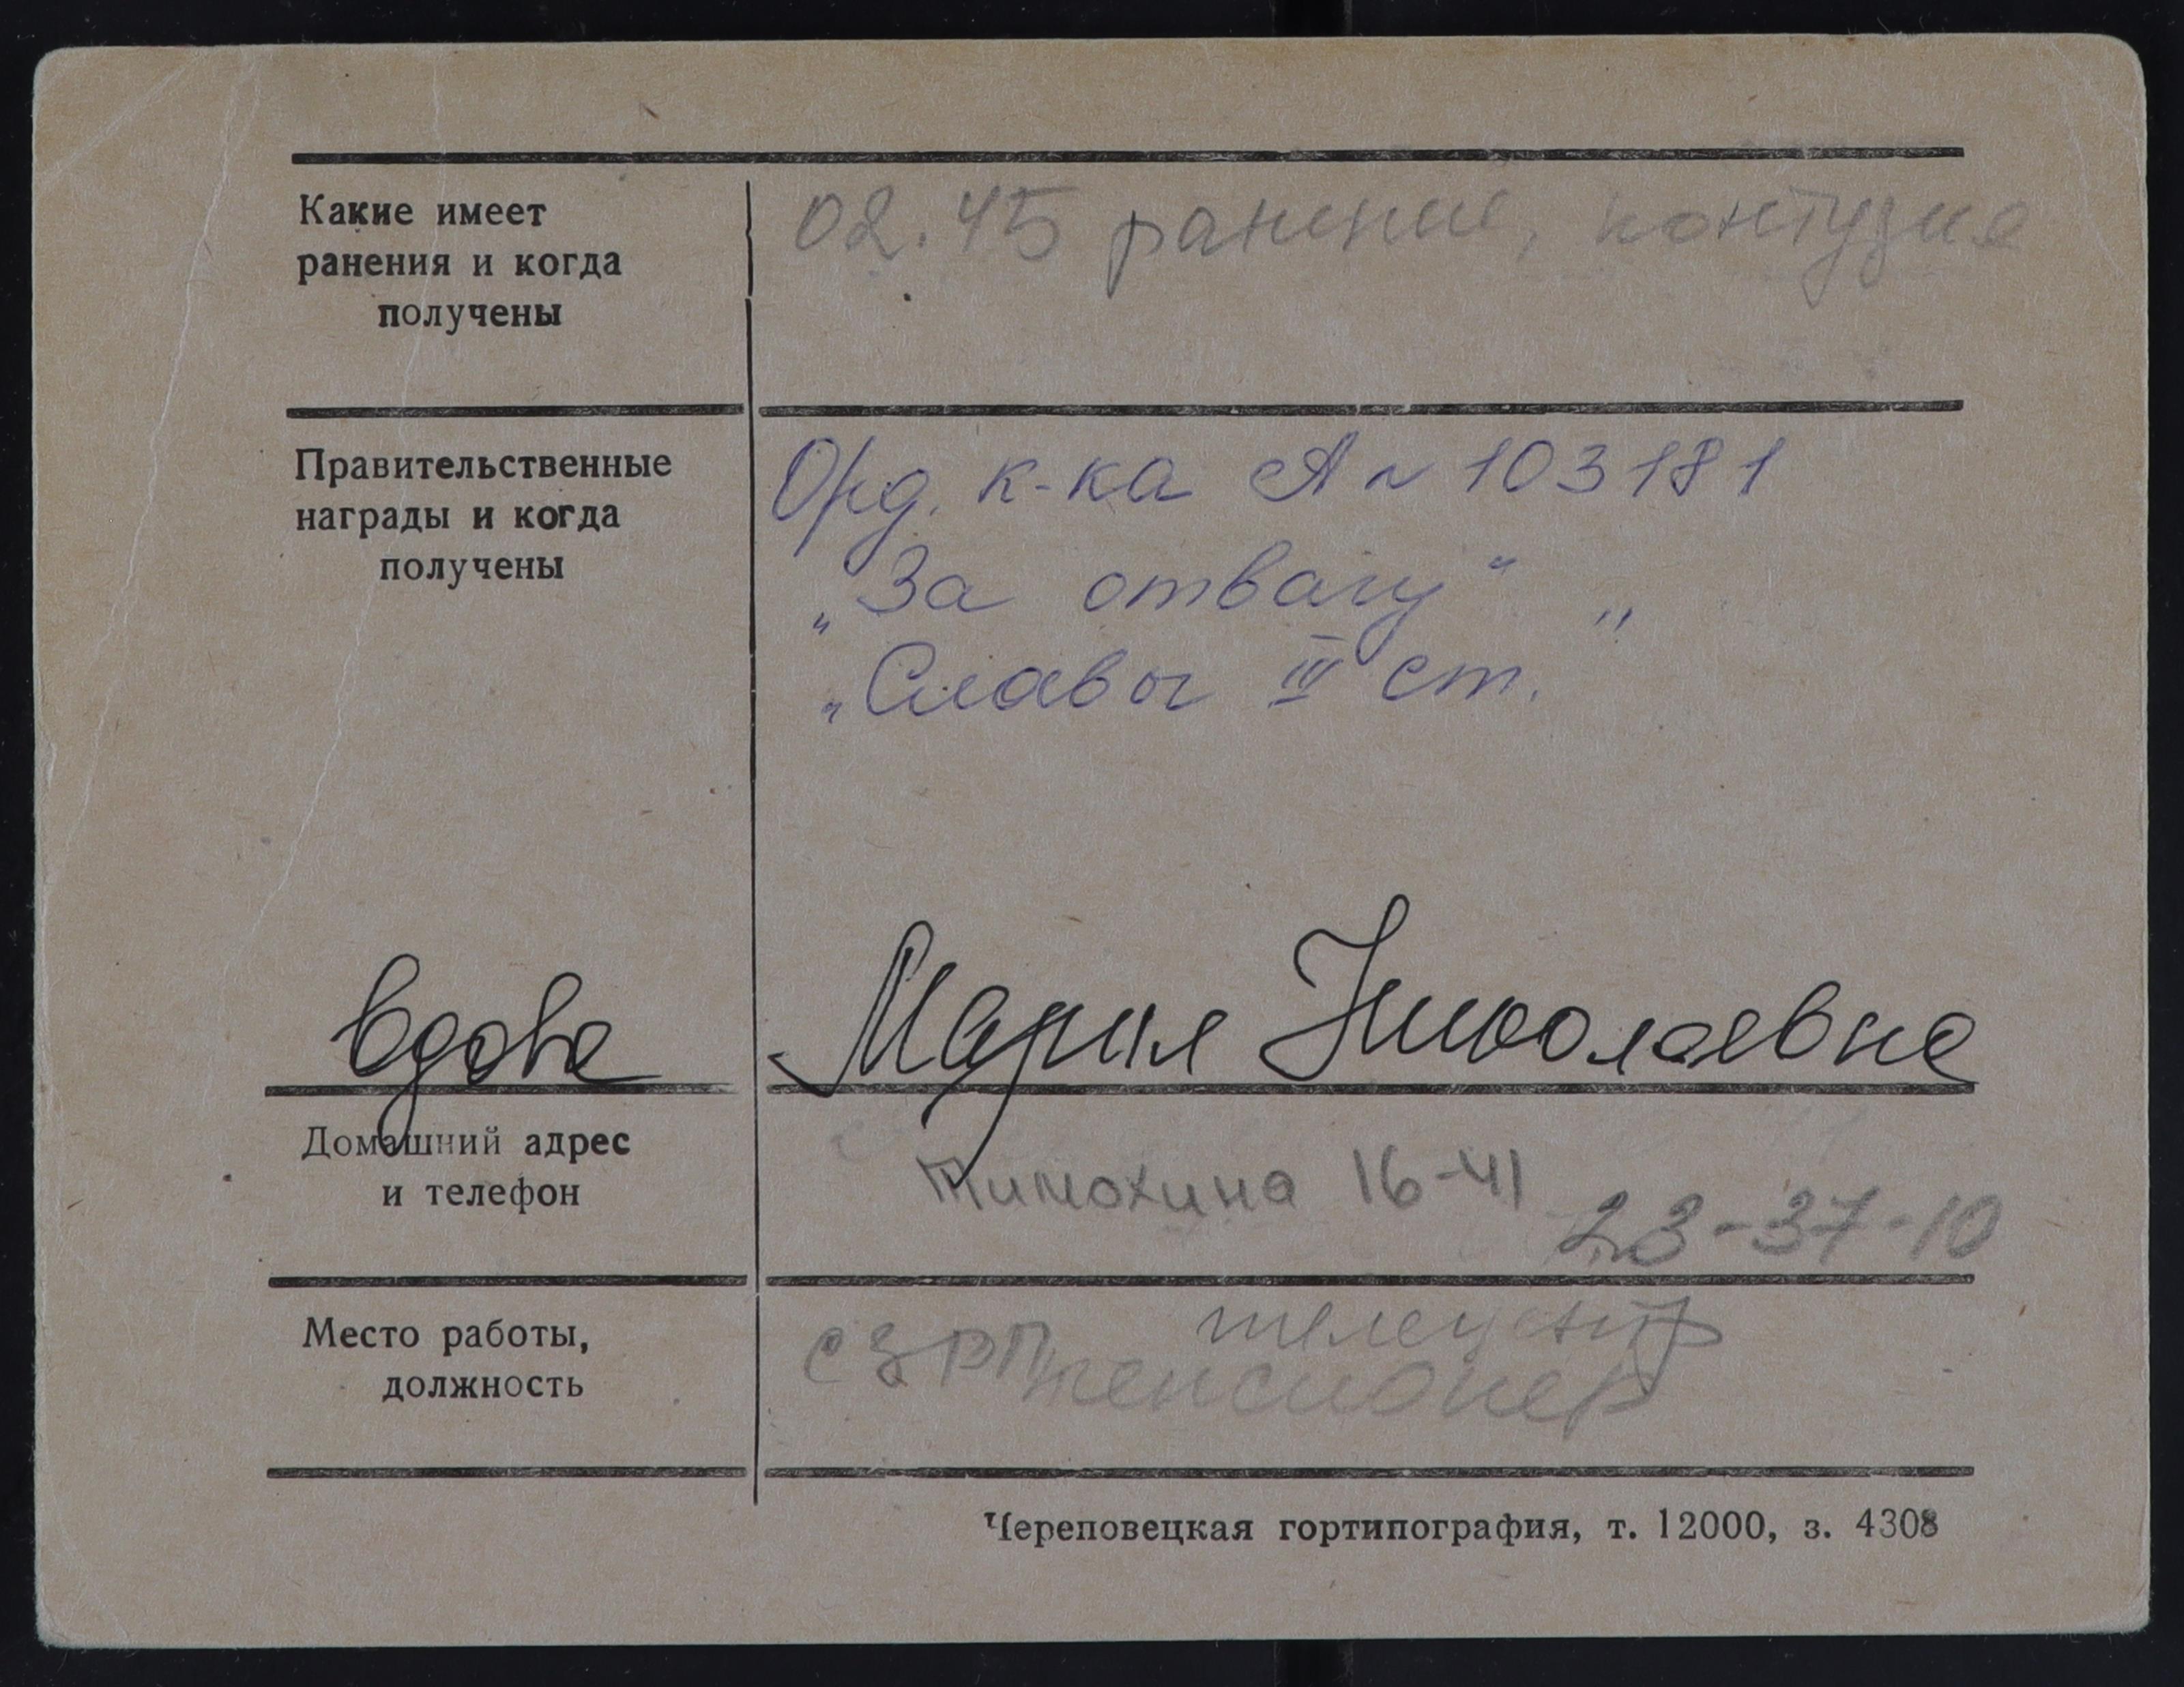 Какие имеет
ранения и когда
получены
02.45 ранение, контузия
Правительственные
награды и когда
получены
Орд. к-ка А № 103181
„За отвагу“ „
„Славы III ст.
вдова Мария Николаевна
Домашний адрес
и телефон
Тимохина 16-41
23-37-10
Место работы,
должность
телецентр
СЗРП пенсионер
Череповецкая гортипография, т. 12000, з. 4308